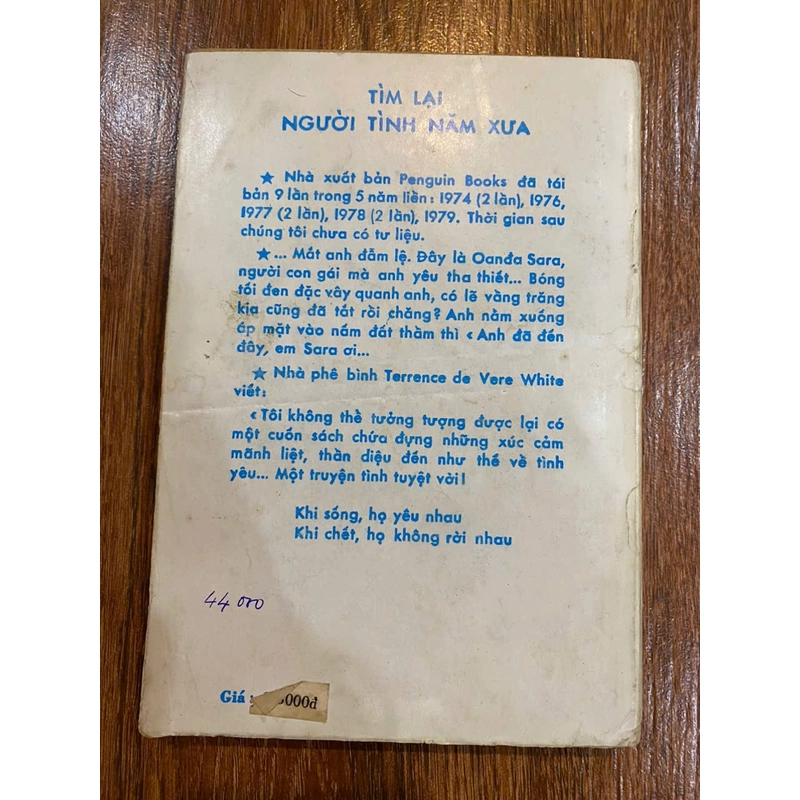 TÌM LẠI
NGƯỜI TÌNH NĂM XƯA
★ Nhà xuất bản Penguin Books đã tái
bản 9 lần trong 5 năm liền: 1974 (2 lần), 1976,
1977 (2 lần), 1978 (2 lần), 1979. Thời gian sau
chúng tôi chưa có tư liệu.
★... Mắt anh đẫm lệ. Đây là Oanđa Sara,
người con gái mà anh yêu tha thiết... Bóng
tối đen đặc vây quanh anh, có lẽ vầng trăng
kia cũng đã tắt rồi chăng? Anh nằm xuống
áp mặt vào nấm đất thầm thì « Anh đã đến
đây, em Sara ơi...
★ Nhà phê bình Terrence de Vere White
viết:
« Tôi không thể tưởng tượng được lại có
một cuốn sách chứa đựng những xúc cảm
mãnh liệt, thần diệu đến như thế về tình
yêu... Một truyện tình tuyệt vời!
Khi sống, họ yêu nhau
Khi chết, họ không rời nhau
44 000
Giá : 000đ